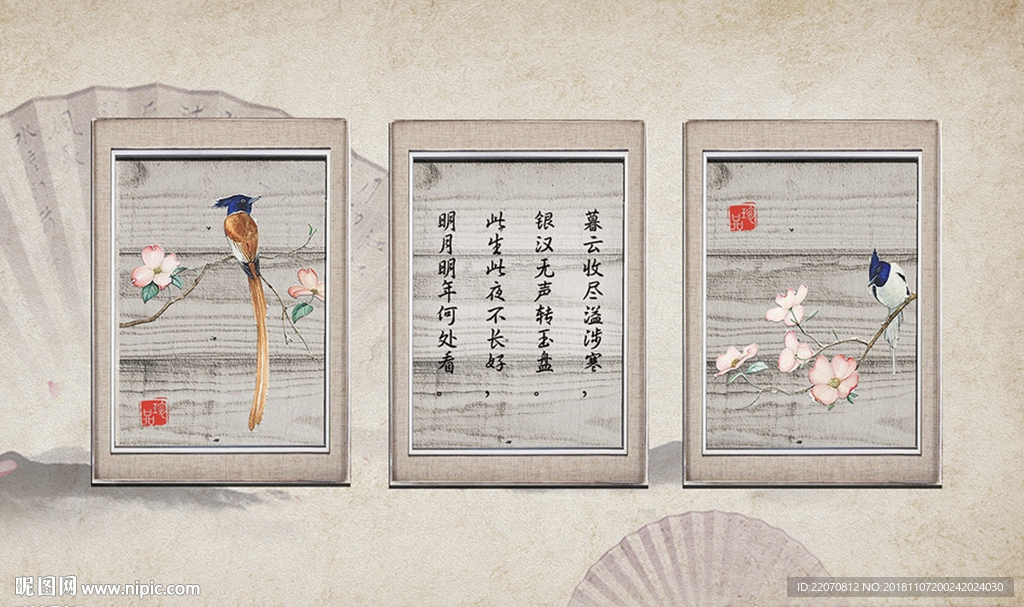 暮云收尽溢涉寒，
银汉无声转玉盘。
此生此夜不长好，
明月明年何处看。
珍品
珍品
昵图网 www.nipic.com
ID:22070812 NO:20181107200242024030